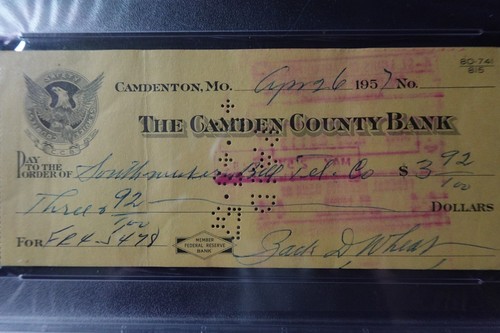 80-741
815
CAMDENTON, MO. Apr 26 1957 No.
THE CAMDEN COUNTY BANK
PAY TO THE ORDER OF Southwestern Bell Tel. Co $ 3 92/100
Three & 92/100 DOLLARS
FOR
MEMBER
FEDERAL RESERVE
BANK
Zack D Wheat